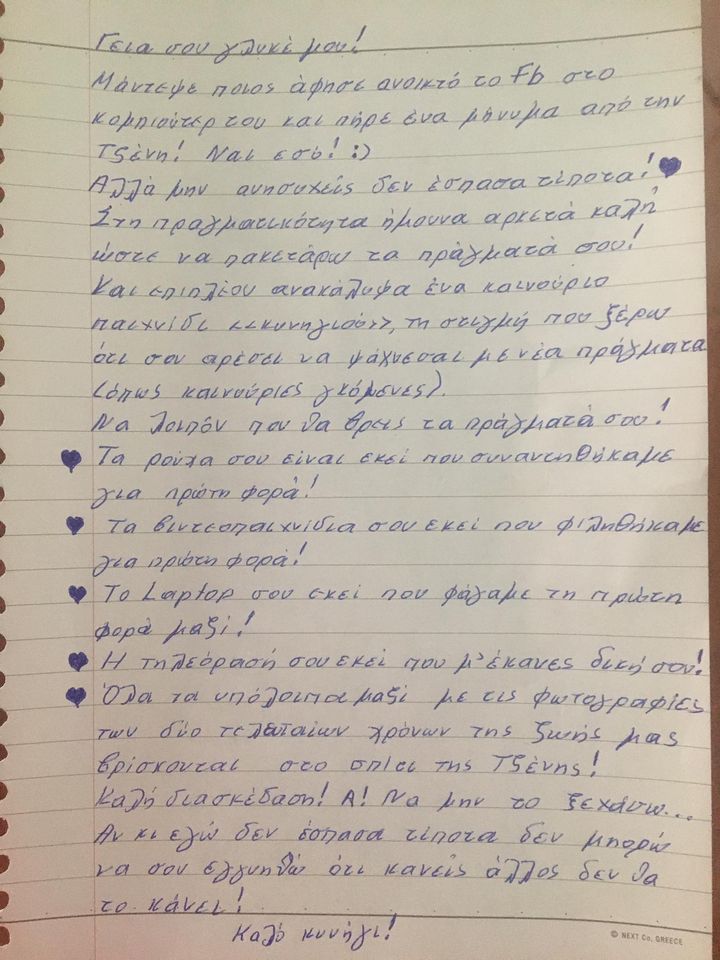 Γεια σου γλυκέ μου!
Μάντεψε ποιος άφησε ανοικτό το Fb στο
κομπιούτερ του και πήρε ένα μήνυμα από την
Τζένη! Ναι εσύ! :)
Αλλά μην ανησυχείς δεν έσπασα τίποτα! ♥
Στη πραγματικότητα ήμουνα αρκετά καλή
ώστε να πακετάρω τα πράγματά σου!
Και επιπλέον ανακάλυψα ένα καινούριο
παιχνίδι <<κυνηγιού>>, τη στιγμή που ξέρω
ότι σου αρέσει να ψάχνεσαι με νέα πράγματα
(όπως καινούριες γκόμενες).
Να λοιπόν που θα βρεις τα πράγματά σου!
♥ Τα ρούχα σου είναι εκεί που συναντηθήκαμε
για πρώτη φορά!
♥ Τα βιντεοπαιχνίδια σου εκεί που φιληθήκαμε
για πρώτη φορά!
♥ Το Laptop σου εκεί που φάγαμε τη πρώτη
φορά μαζί!
♥ Η τηλεόρασή σου εκεί που μ' έκανες δική σου!
♥ Όλα τα υπόλοιπα μαζί με τις φωτογραφίες
των δύο τελεταίων χρόνων της ζωής μας
βρίσκονται στο σπίτι της Τζένης!
Καλή διασκέδαση! Α! Να μην το ξεχάσω...
Αν κι εγώ δεν έσπασα τίποτα δεν μπορώ
να σου εγγυηθώ ότι κανείς άλλος δεν θα
το κάνει!
Καλό κυνήγι!
© NEXT Co, GREECE